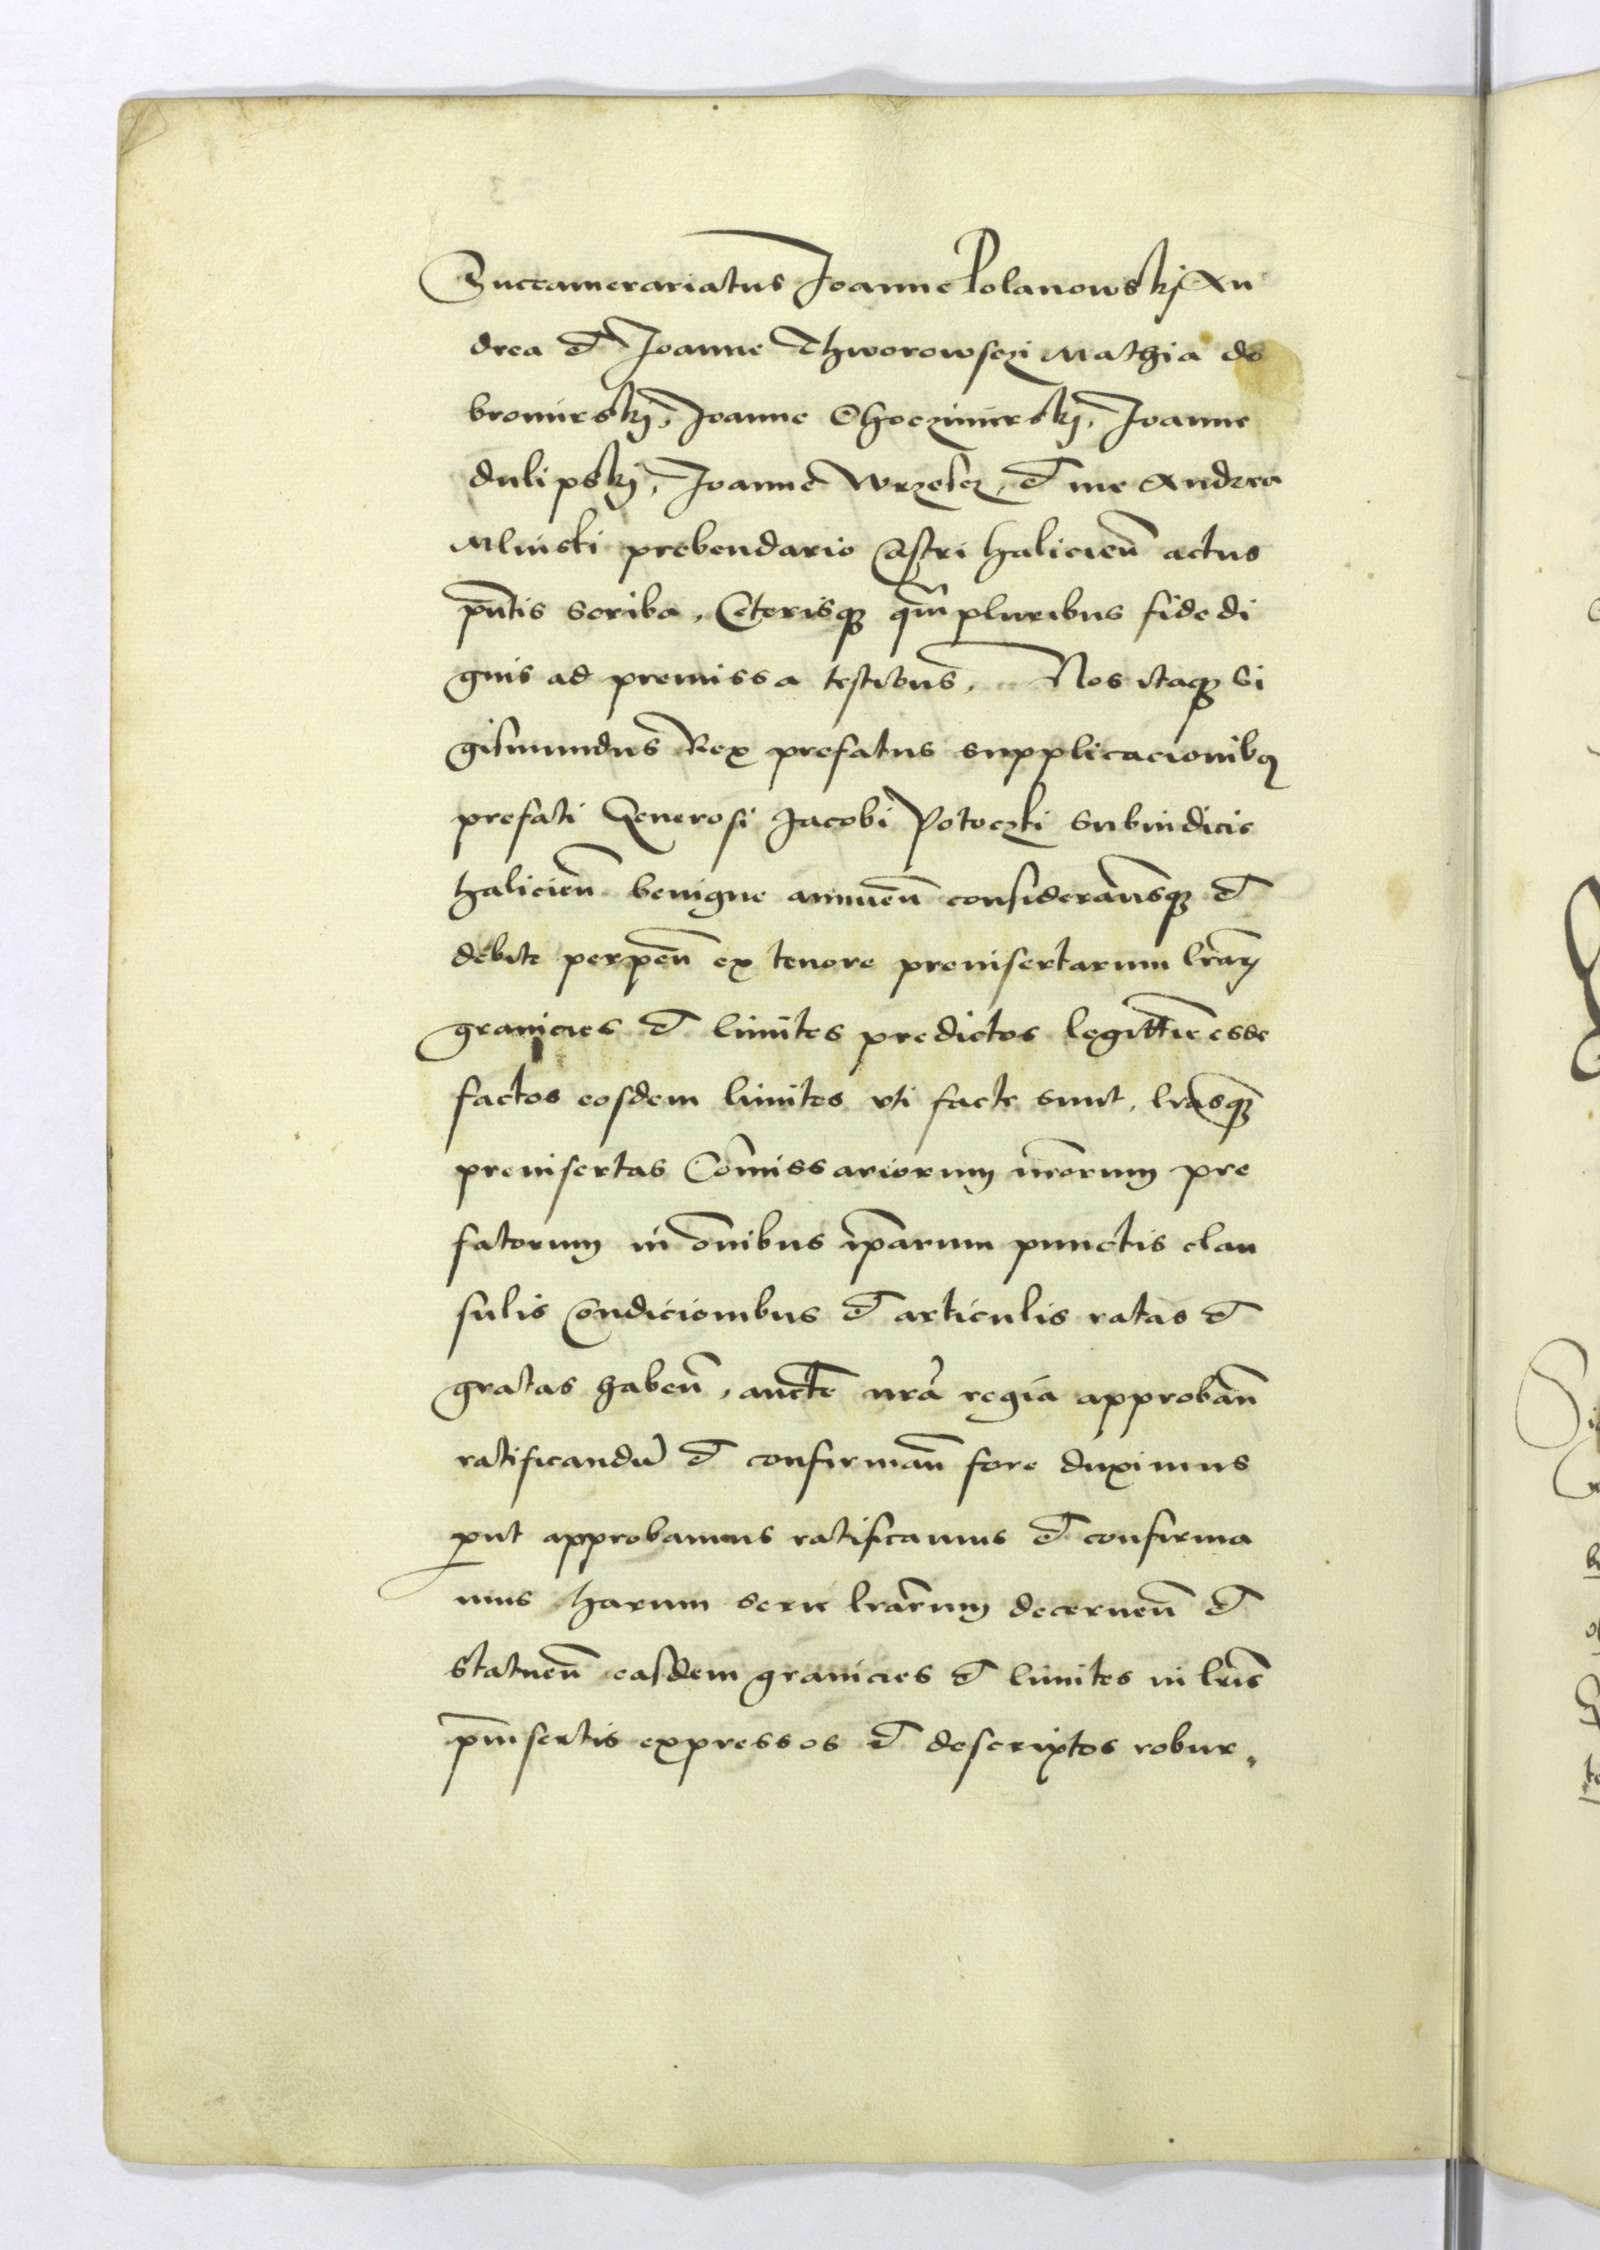 Succamerariatus Joanne Polanowskj An
drea et Joanne Thworowsczi Mathia do
bromirskj, Joanne Choczimirskj, Joanne
dulipskj, Joanne Wrzescz, et me Andrea
Mlinski prebendario Castri halicien̄ actus
pn̄tis scriba, Ceterisqꝫ qm̄pluribus fidedi
gnis ad premissa testibus, Nos itaqꝫ Si
gismundus Rex prefatus supplicacionibꝫ
prefati Generosi Jacobi Potoczki Subiudicis
halicien̄ benigne annuen̄ consideran̄sqꝫ et
debite perpen̄ ex tenore preinsertarum lrāꝝ
granicies et limites predictos legitt̄ie esse
factos eosdem limites vti facte sunt, lrāsqꝫ
preinsertas Com̄issariorum nr̄orum pre
fatorum in om̄ibus ip̄arum punctis clau
sulis Condicionibus et articulis ratas et
gratas haben̄, auctē nr̄a regia approban̄
ratificandū et confirman̄ fore duximus
ꝓut approbamus ratificamus et confirma
mus harum serie lrārum decernen̄ et
statuen̄ easdem granicies et limites in lrīs
p̄insertis expressos et descriptos robur,